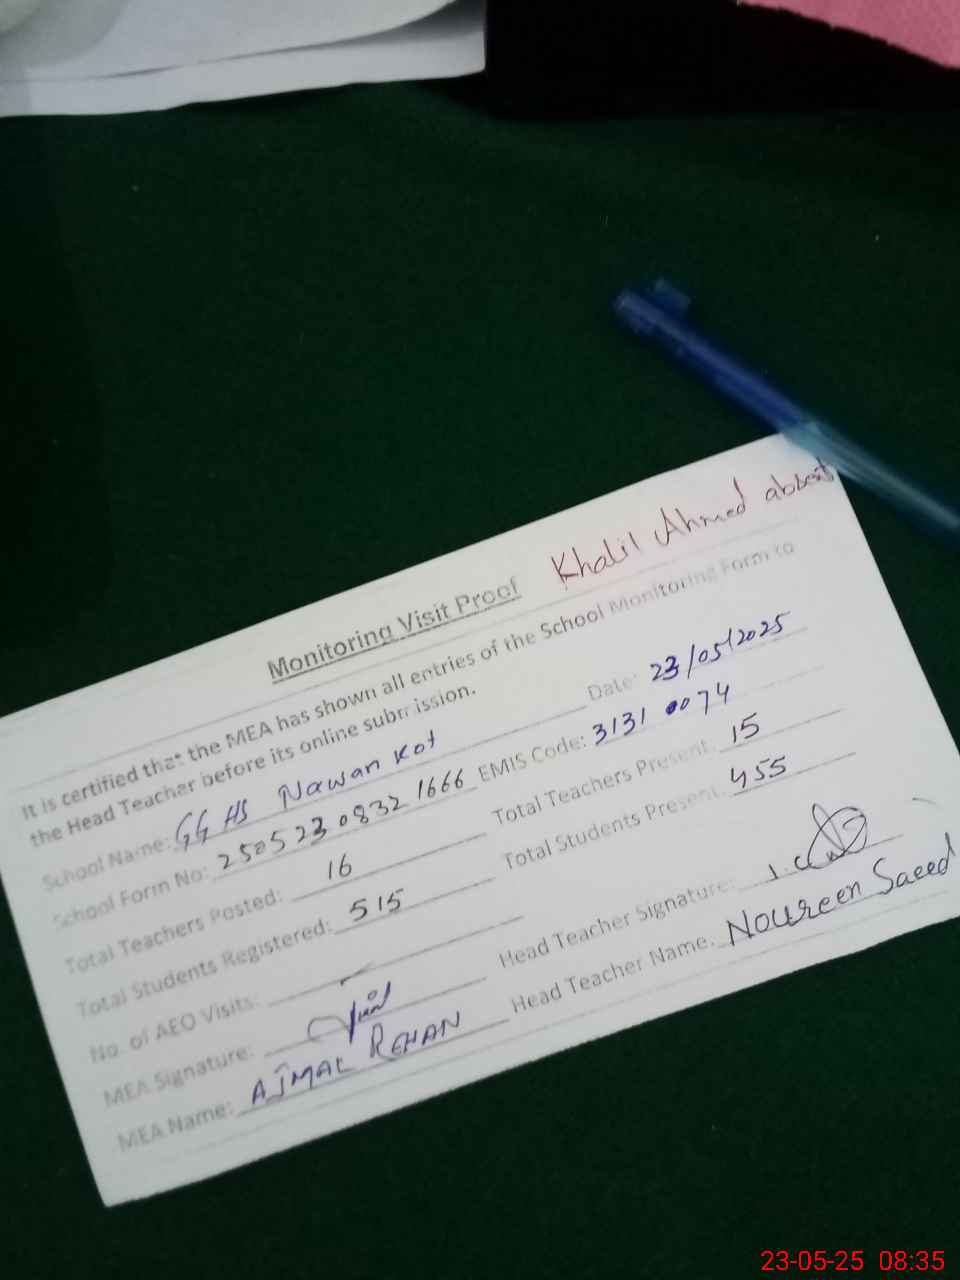 Khalil Ahmed absent
Monitoring Visit Proof
It is certified that the MEA has shown all entries of the School Monitoring Form to
the Head Teacher before its online submission.
School Name: GGHS Nawan Kot Date: 23/05/2025
School Form No: 2505230832 1666 EMIS Code: 3131 0074
Total Teachers Posted: 16 Total Teachers Present: 15
Total Students Registered: 515 Total Students Present: 455
No. of AEO Visits:
MEA Signature: Head Teacher Signature:
MEA Name: AJMAL REHAN Head Teacher Name: Noureen Saeed
23-05-25 08:35